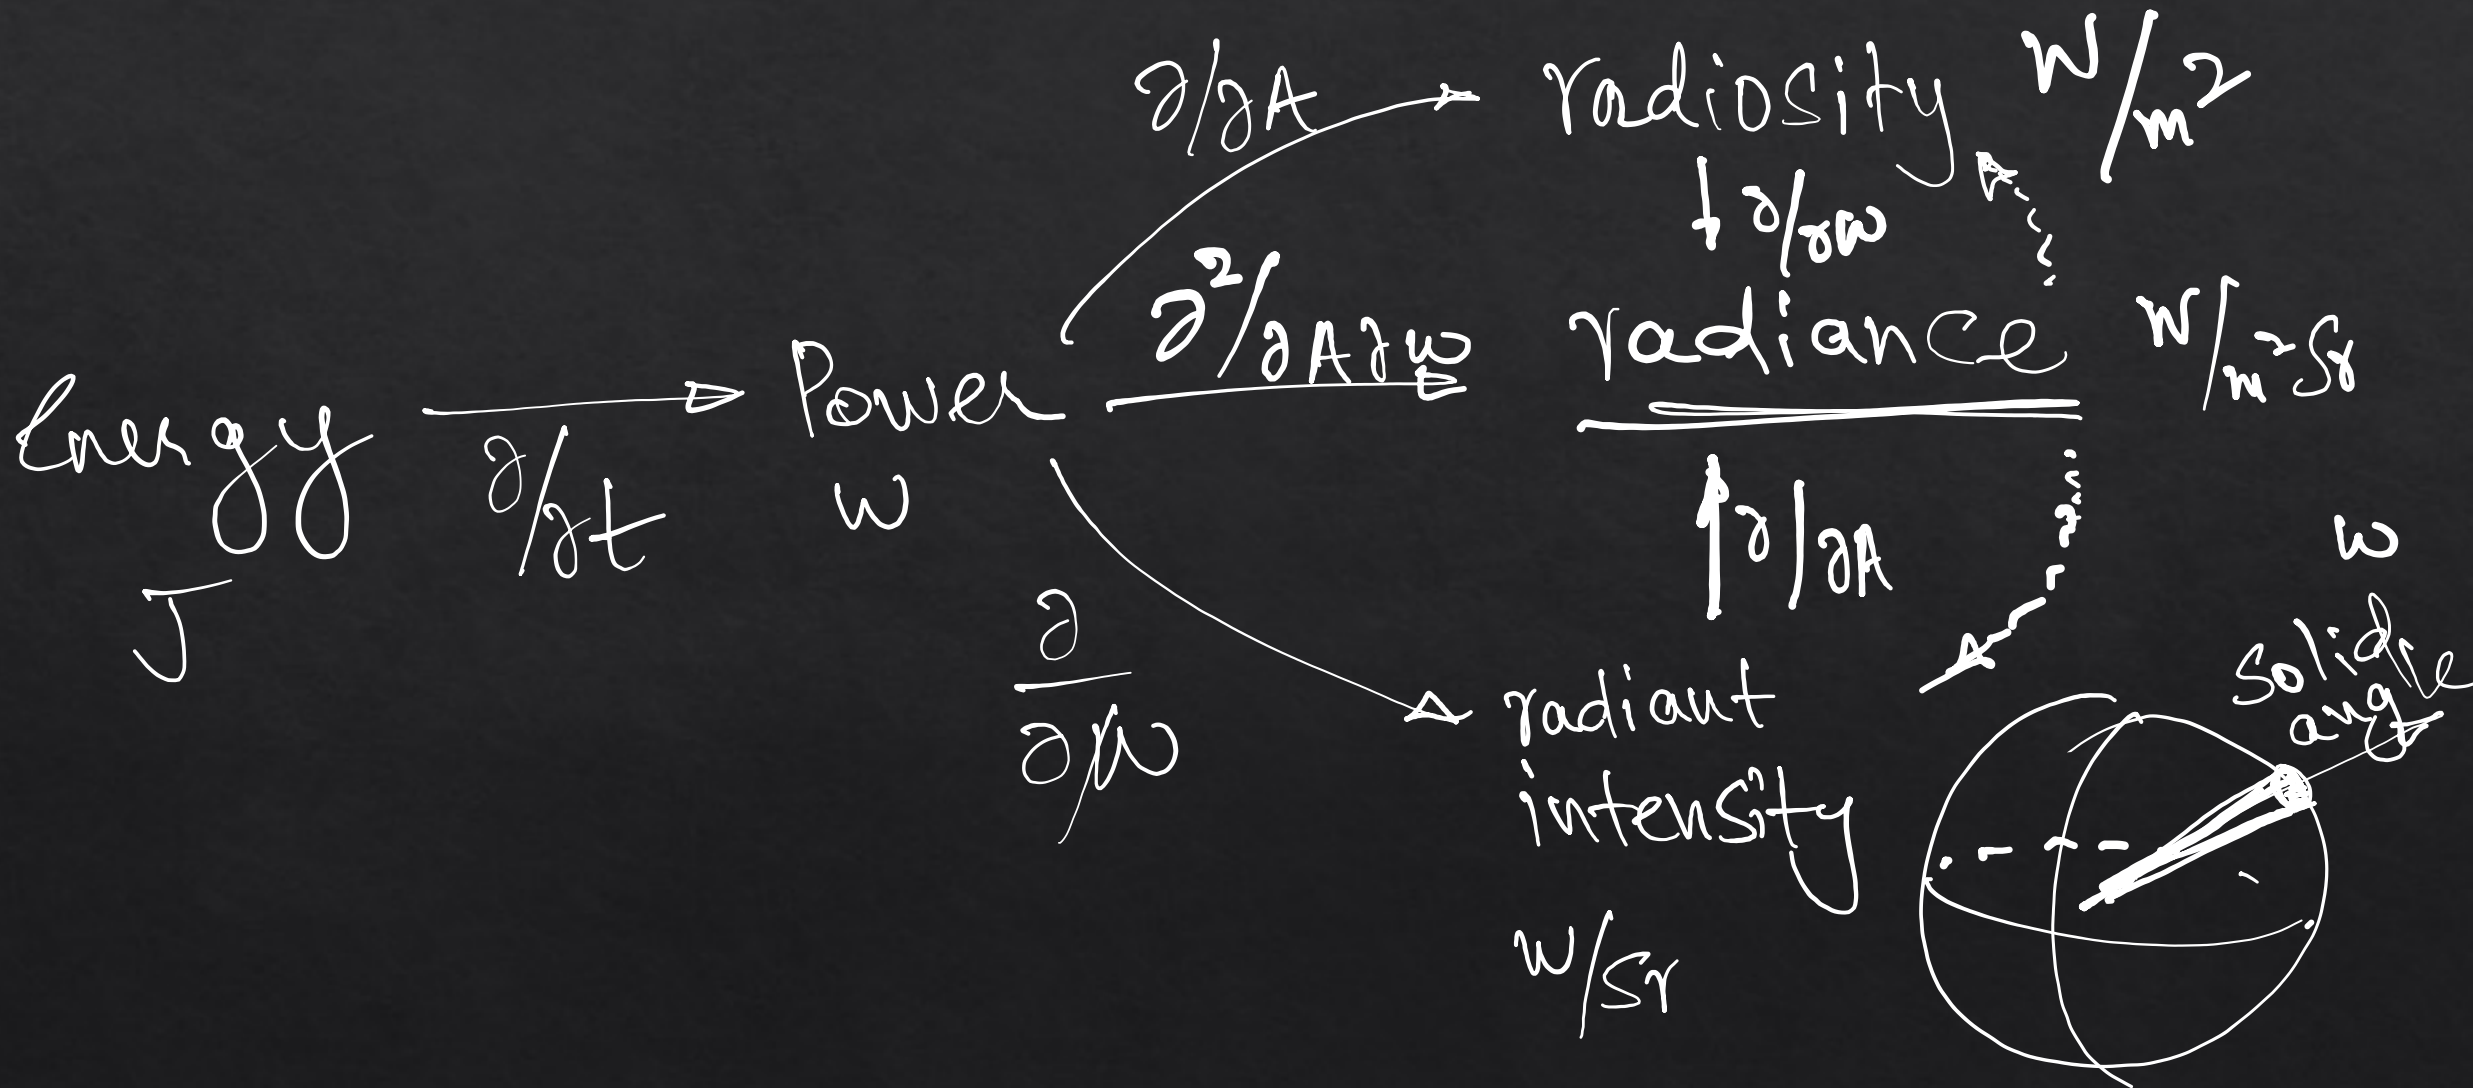 Energy
J
∂/∂t
Power
W
∂/∂A
radiosity W/m²
∂/∂ω
∂²/∂A∂ω
radiance W/m² Sr
∂/∂A
∂/∂ω
radiant
intensity
W/Sr
ω
solid
angle